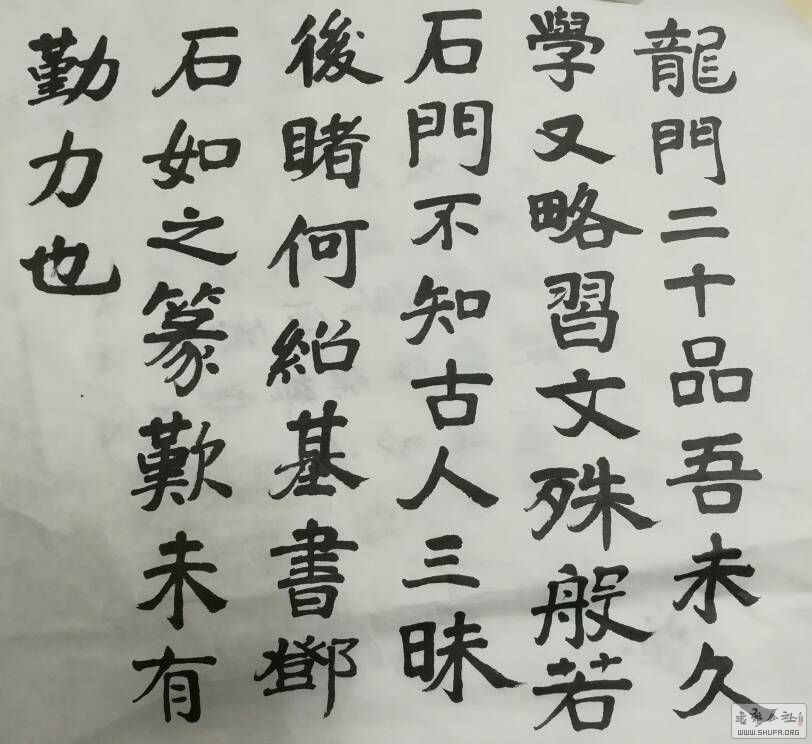 龍門二十品吾未久
學又略習文殊般若
石門不知古人三昧
後睹何紹基書鄧
石如之篆歎未有
勤力也
WWW.SHUFA.ORG